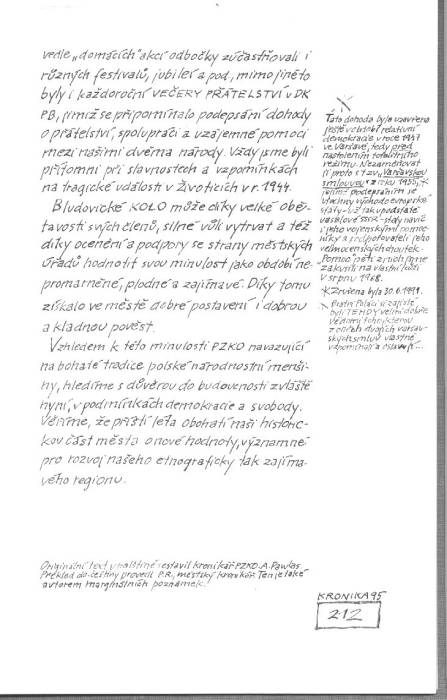 vedle „domácích" akcí odbočky zúčastňovali i
různých festivalů, jubileí a pod., mimo jiné to
byly i každoroční VEČERY PŘÁTELSTVÍ v DK
PB, jimiž se připomínalo podepsání dohody
o přátelství, spolupráci a vzájemné pomoci
mezi našimi dvěma národy. Vždy jsme byli
přítomni při slavnostech a vzpomínkách
na tragické události v Životicích v r. 1944.
Bludovické KOLO může díky velké obě-
tavosti svých členů, silné vůli vytrvat a též
díky ocenění a podpory se strany městských
úřadů hodnotit svou minulost jako období ne-
promarněné, plodné a zajímavé. Díky tomu
získalo ve městě dobré postavení i dobrou
a kladnou pověst.
Vzhledem k této minulosti PZKO navazující
na bohaté tradice polské národnostní menši-
ny, hledíme s důvěrou do budoucnosti zvláště
nyní, v podmínkách demokracie a svobody.
Věříme, že příští léta obohatí naši historic-
kou část města o nové hodnoty, významné
pro rozvoj našeho etnograficky tak zajíma-
vého regionu.
Tato dohoda byla uzavřena
ještě v období relativní
demokracie v roce 1947
ve Varšavě, tedy před
nastolením totalitního
režimu. Nezaměňovat
ji proto s tzv. Varšavskou
smlouvou z roku 1955,
jejímž podepsáním se
všechny východoevropské
státy - už tak v podstatě
vasalové SSSR - staly navíc
i jeho vojenskými pomoc-
níky a podporovateli jeho
velmocenských choutek.
Pomoc pěti z nich jsme
zakusili na vlastní kůži
v srpnu 1968.
Zrušena byla 30.6.1991.
Bratři Poláci si zajisté
byli TEHDY velmi dobře
vědomi toho, kterou
z oněch dvojích varšav-
ských smluv vlastně
vzpomínají a oslavují...
Originální text v polštině sestavil kronikář PZKO A. Pawlas.
Překlad do češtiny provedl P.R., městský kronikář. Ten je také
autorem marginálních poznámek.
KRONIKA 95
212